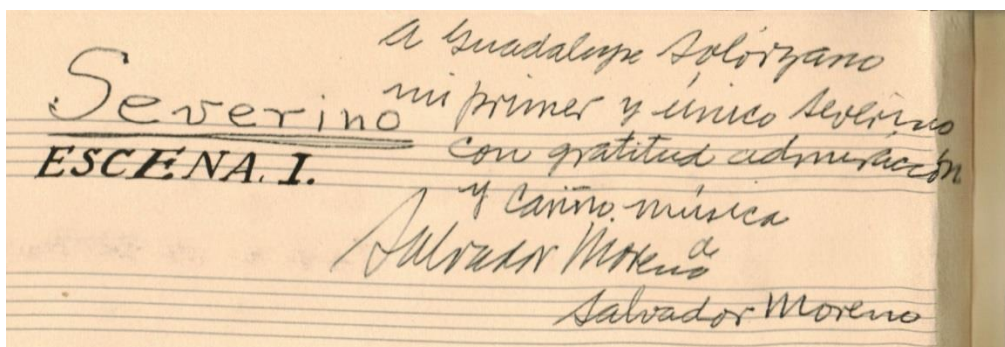 Severino
ESCENA. I.
a Guadalupe Solórzano
mi primer y único Severino
con gratitud admiración
y cariño.
Salvador Moreno
música
de
Salvador Moreno